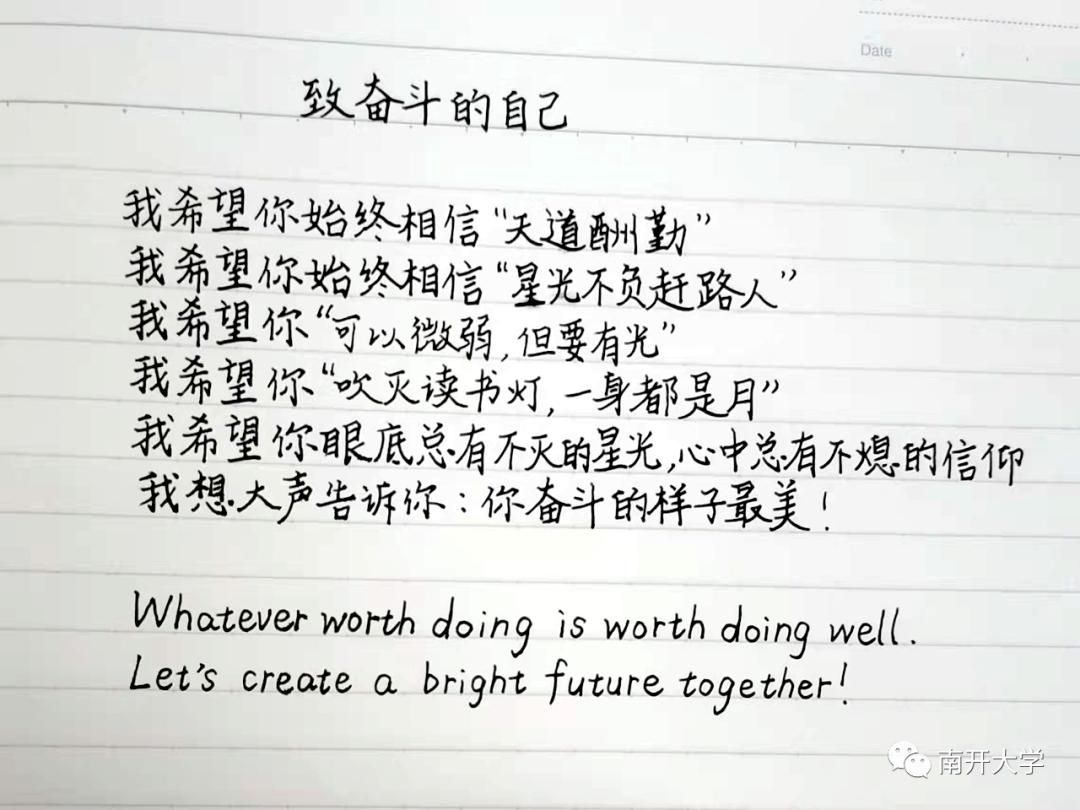 Date
致奋斗的自己
我希望你始终相信“天道酬勤”
我希望你始终相信“星光不负赶路人”
我希望你“可以微弱,但要有光”
我希望你“吹灭读书灯,一身都是月”
我希望你眼底总有不灭的星光,心中总有不熄的信仰
我想大声告诉你:你奋斗的样子最美!
Whatever worth doing is worth doing well.
Let's create a bright future together!
南开大学